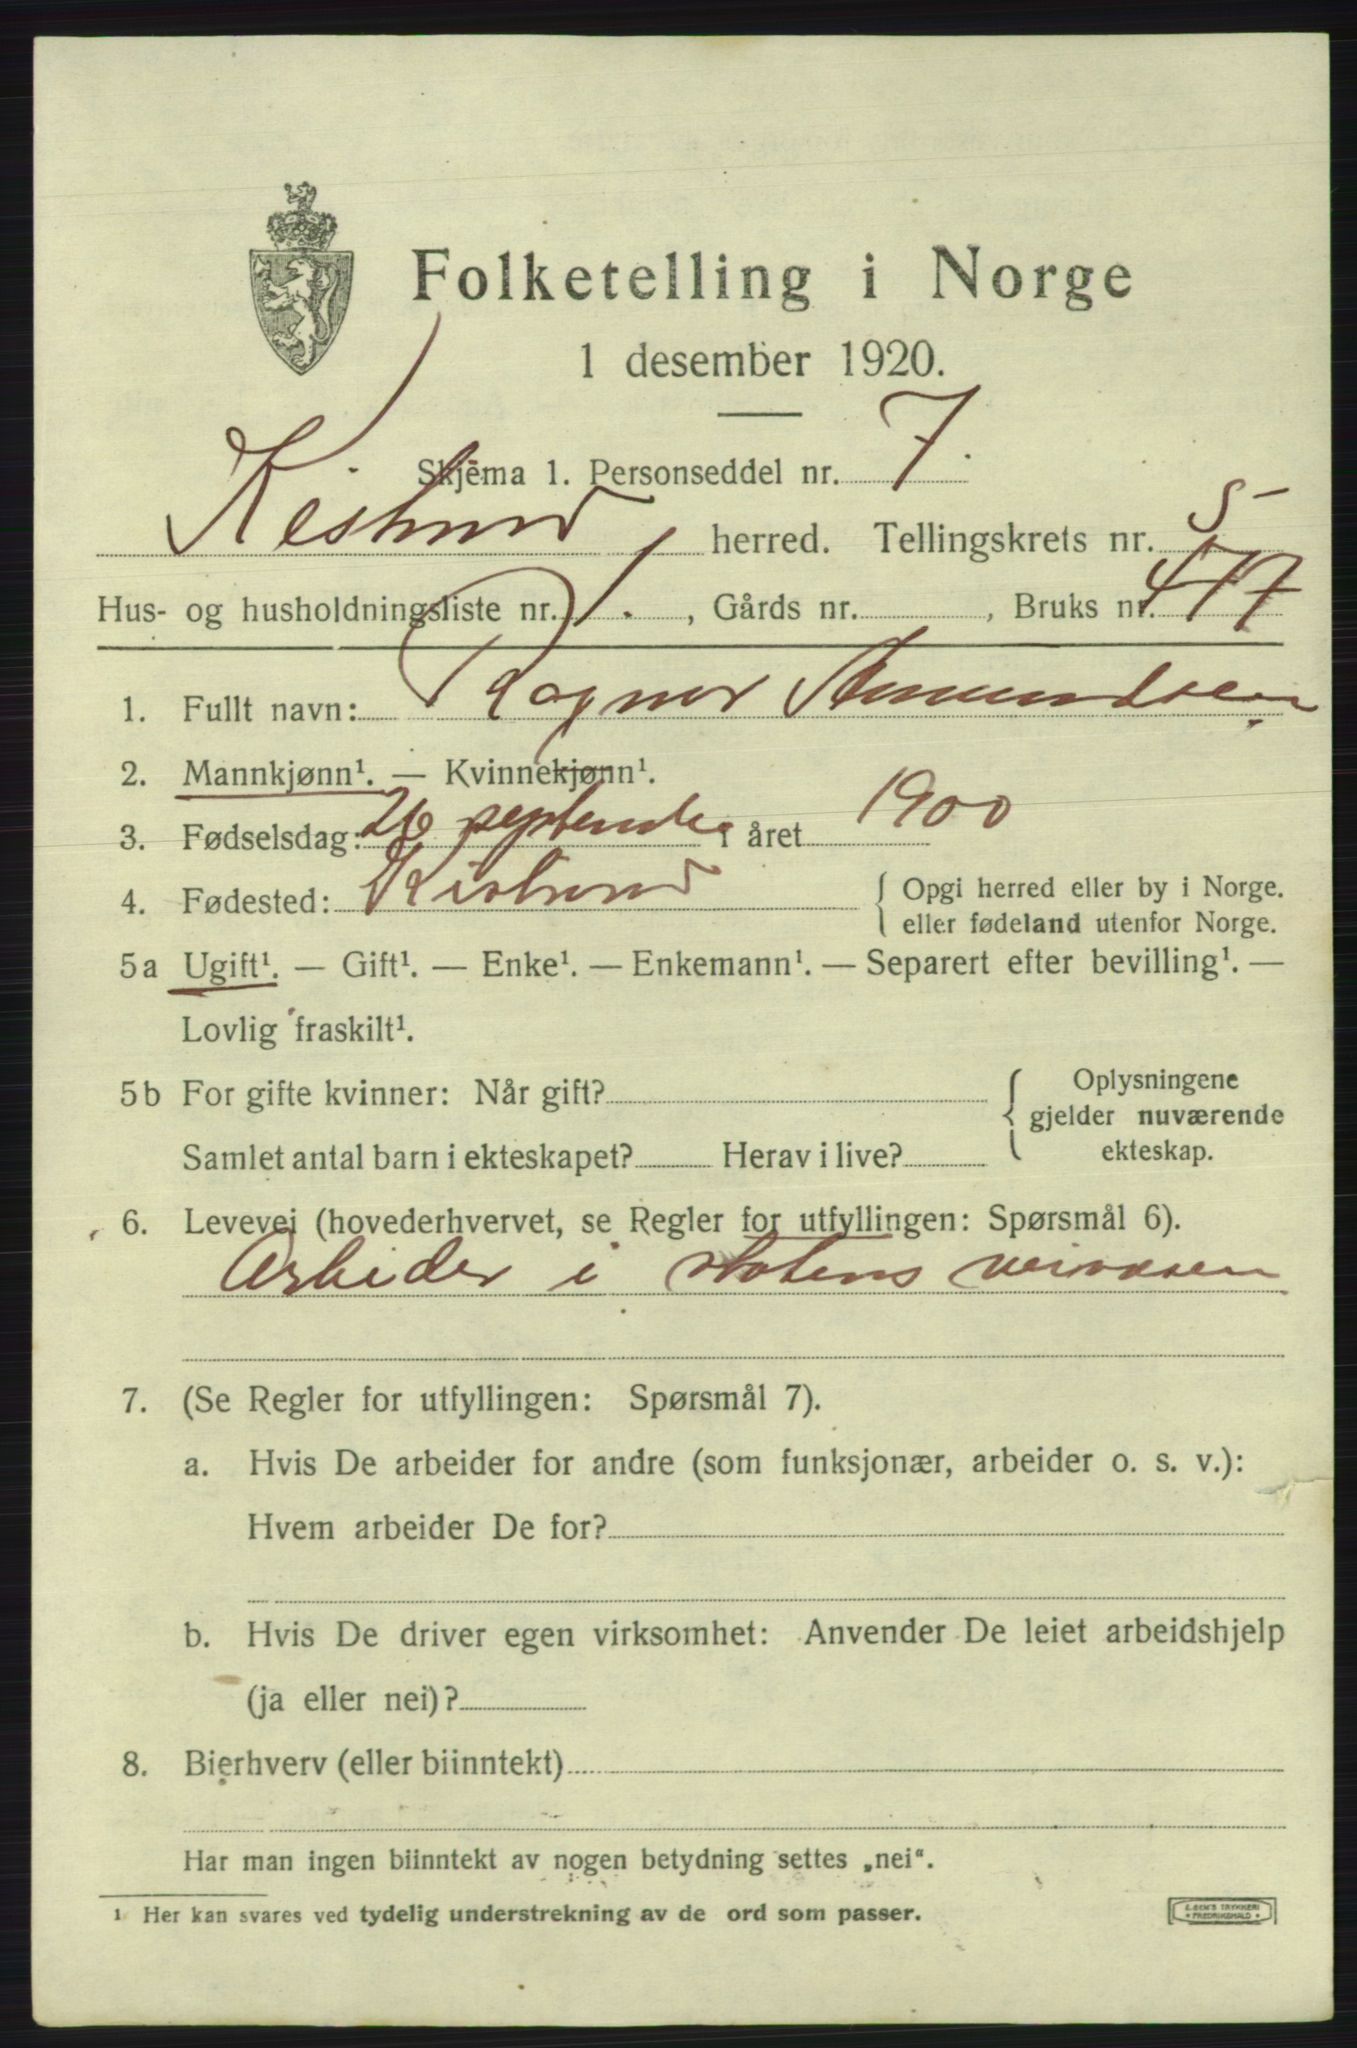 Folketelling i Norge
1 desember 1920.
Skjema 1. Personseddel nr. 7.
Kistrand herred. Tellingskrets nr. 5
Hus- og husholdningsliste nr. 1., Gårds nr. , Bruks nr. 477
1. Fullt navn: Ragnar Amundsen.
2. Mannkjønn¹. — Kvinnekjønn¹.
3. Fødselsdag: 26 september i året 1900
4. Fødested: Kistrand { Opgi herred eller by i Norge.
eller fødeland utenfor Norge.
5a Ugift¹. — Gift¹. — Enke¹. — Enkemann¹. — Separert efter bevilling¹. —
Lovlig fraskilt¹.
5b For gifte kvinner: Når gift? { Oplysningene
gjelder nuværende
Samlet antal barn i ekteskapet? Herav i live? ekteskap.
6. Levevei (hovederhvervet, se Regler for utfyllingen: Spørsmål 6).
Arbeider i statens veivæsen
7. (Se Regler for utfyllingen: Spørsmål 7).
a. Hvis De arbeider for andre (som funksjonær, arbeider o. s. v.):
Hvem arbeider De for?
b. Hvis De driver egen virksomhet: Anvender De leiet arbeidshjelp
(ja eller nei)?
8. Bierhverv (eller biinntekt)
Har man ingen biinntekt av nogen betydning settes „nei“.
¹ Her kan svares ved tydelig understrekning av de ord som passer.